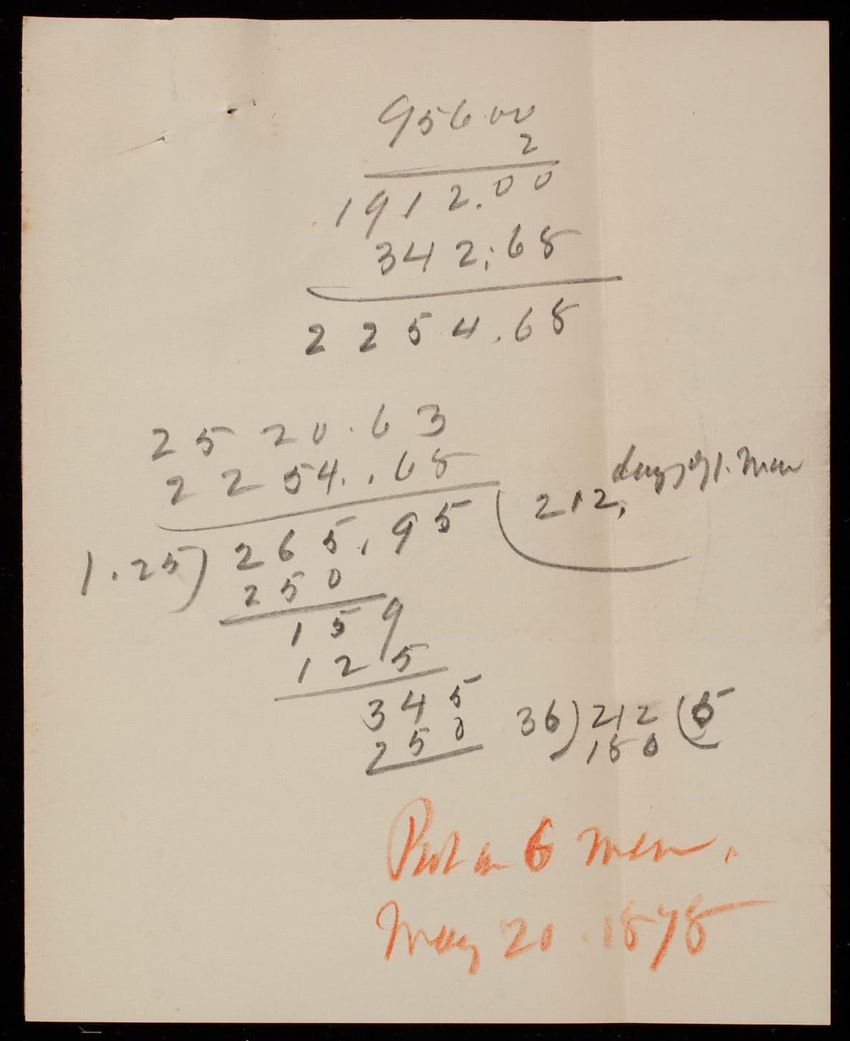 956.00
2
1912.00
342.68
2254.68
2520.63
2254.68
1.25) 265.95 ( 212, days of 1. man
250
159
125
345
250
36) 212 (5
180
Put on 6 men.
May 20. 1878